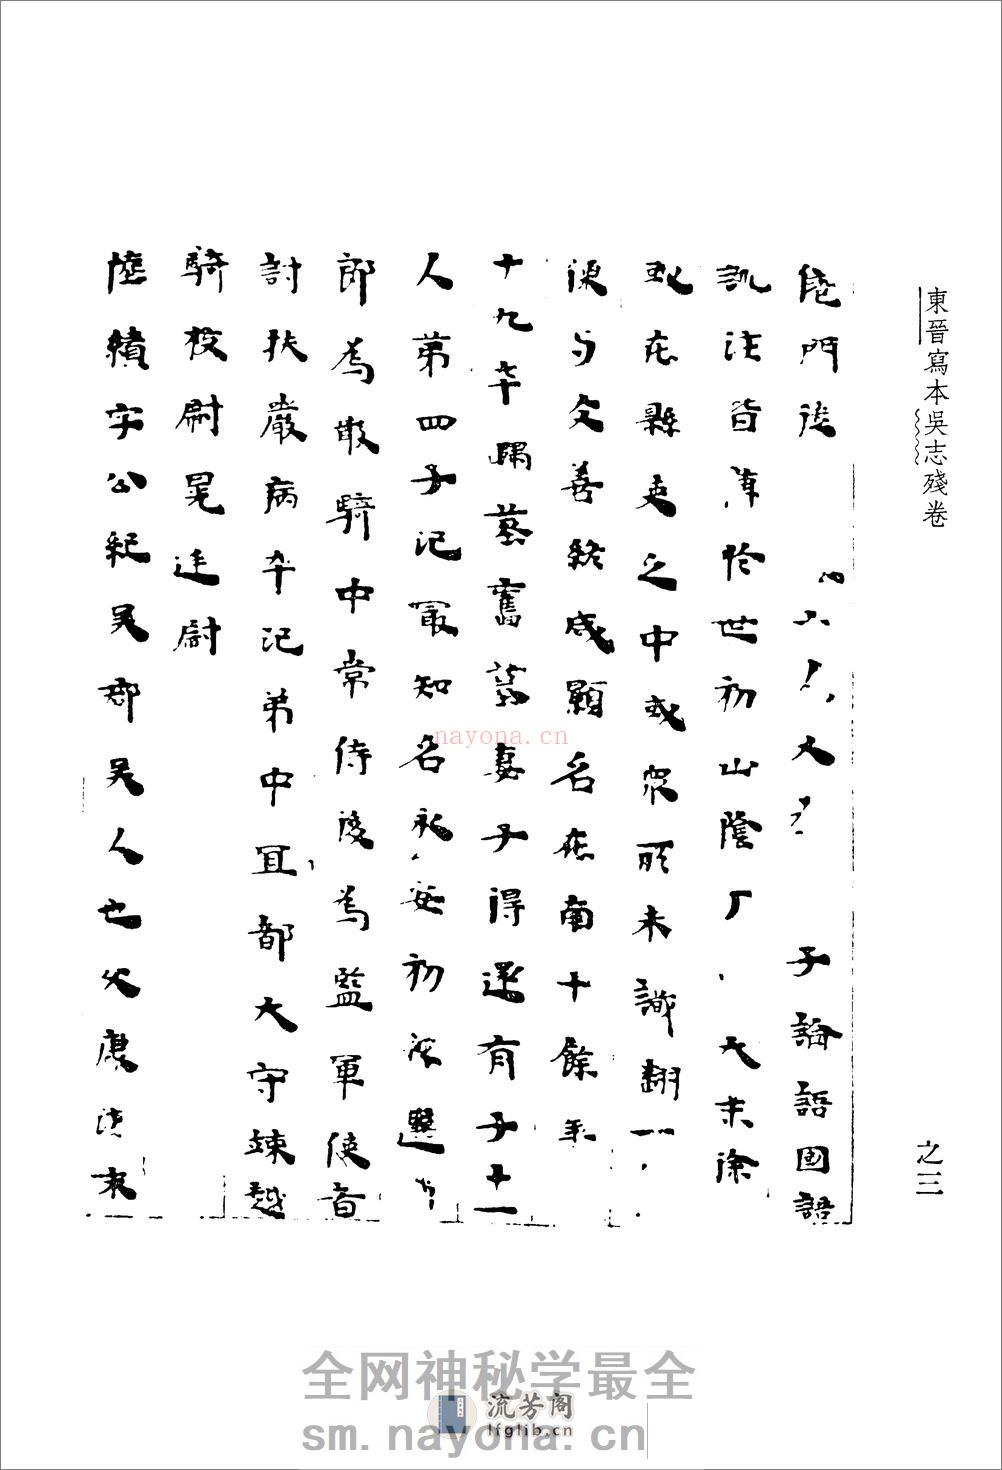 東晉寫本吳志殘卷
之三
門徒 人 子論語國語
訓注皆傳於世初山陰丁 大末徐
或在縣吏之中或眾所未識翻一
便与交善終咸顯名在南十餘年
十九卒歸葬舊墓妻子得還有子十一
人第四子汜冣知名永安初 選
郎為散騎中常侍後為監軍使者
討扶嚴病卒汜弟中冝都大守竦越
騎校尉晃廷尉
陸績字公紀吳郡吳人也父康漢末
nayona.cn
全网神秘学最全
流芳阁
lfglib.cn
sm.nayona.cn